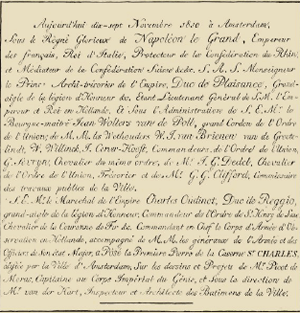 Aujourd'hui dix-sept Novembre 1810 à Amsterdam,
Sous le Regne Glorieux de Napoléon le Grand, Empereur
des français, Roi d'Italie, Protecteur de la Confédération du Rhin,
et Médiateur de la Confédération Suisse &c&c. S. A. S. Monseigneur
le Prince Archi-trésorier de l'Empire, Duc de Plaisance, Grand-
aigle de la légion d'honneur &c. étant Lieutenant Général de S.M. l'Em-
pereur et Roi en Hollande, & Sous l'Administration de S. E. Mr. le
Bourgue-maître Jean Wolters van de Poll, grand Cordon de l'Ordre
de l'Union; de M.M. les Wethouders W. J. van Brienen van de Groote-
lindt, W. Willink, J. Corver-Hooft, Commandeurs, de l'Ordre de l'Union,
G. Chevalier du même ordre, de Mr. I. G. Dedel, Chevalier
de l'Ordre de l'Union, Trésorier et de Mr. G. G. Clifford, Commissaire
des travaux publics de la Ville.
S. E. Mr. le Maréchal de l'Empire Charles Oudinot, Duc de Reggio,
grand-aigle de la légion d'Honneur, Commandeur de l'Ordre de St. Henry de Saxe
Chevalier de la Couronne de Fer &c. Commandant en Chef le Corps d'Armée d'Ob-
servation en Hollande, accompagné de M.M. les généraux de l'Armée et des
Officiers de son état Major, a Posé la Première Pierre de la Caserne St CHARLES,
par la Ville d'Amsterdam, Sur les dessins et Projets de Mr. Picot de
Moras, Capitaine au Corps Impérial du Génie, et sous la direction de
Mr. van der Hart, Inspecteur et Architecte des Batimens de la Ville.